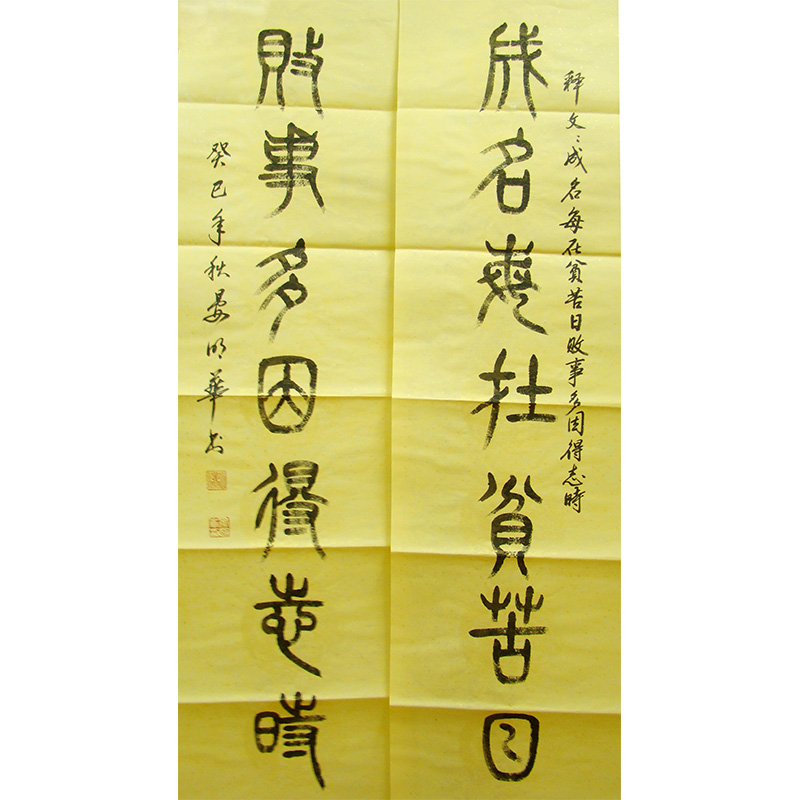 释文：成名每在貧苦日敗事多因得志時
成名每在貧苦日
敗事多因得志時
癸巳年秋晏明華书